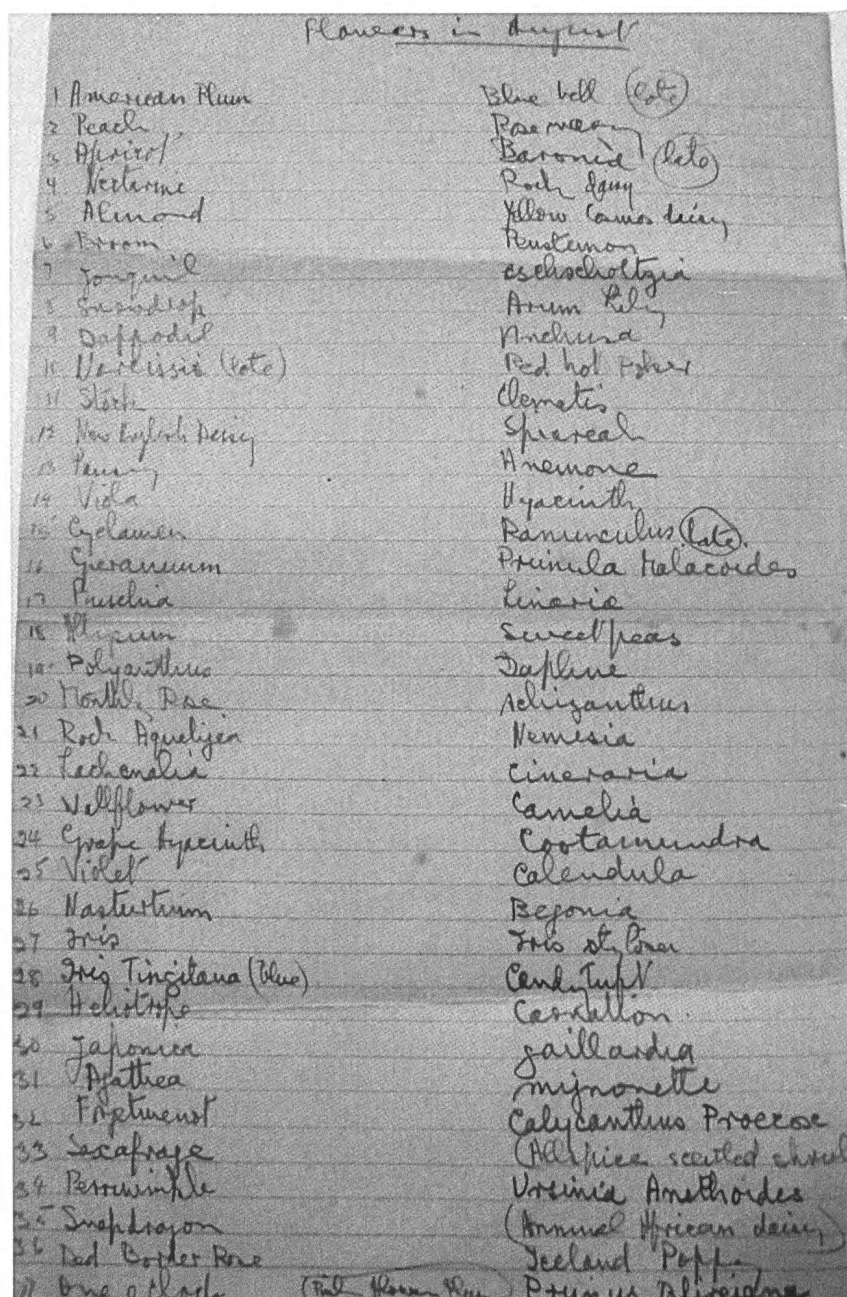 Flowers in August
1 American Plum
2 Peach "
3 Apricot
4 Nectarine
5 Almond
6 Broom
7 Jonquil
8 Snowdrop
9 Daffodil
10 Narcissis (late)
11 Stock
12 New English Daisy
13 Pansy
14 Viola
15 Cyclamen
16 Geraneum
17 Fuschia
18 Alysum
19 Polyanthus
20 Monthly Rose
21 Rock Aquelijia
22 Lachenalia
23 Wallflower
24 Grape Hyacinth
25 Violet
26 Nasturtium
27 Iris
28 Iris Tingitana (blue)
29 Heliotrope
30 Japonica
31 Agathea
32 Forgetmenot
33 Saxafrage
34 Perriwinkle
35 Snapdragon
36 Red Border Rose
37 One o'clock
Blue bell (late)
Rosemary
Baronia (late)
Rock daisy
Yellow Cosmos daisy
Penstemon
eschscholtzia
Arum Lily
Anchusa
Red hot Poker
Clematis
Spireah
Anemone
Hyacinth
Ranunculus (late).
Primula Malacoides
Linaria
Sweet peas
Daphne
schizanthus
Nemesia
Cineraria
Camelia
Cootamundra
Calendula
Begonia
Iris stylosa
Candytuft
Carnation
gaillardia
mignonette
Calycanthus Praecose
(Allspice scented shrub
Ursinia Anethoides
(Annual African daisy)
Iceland Poppy
(Pink flower Plum) Prunus Blireidna